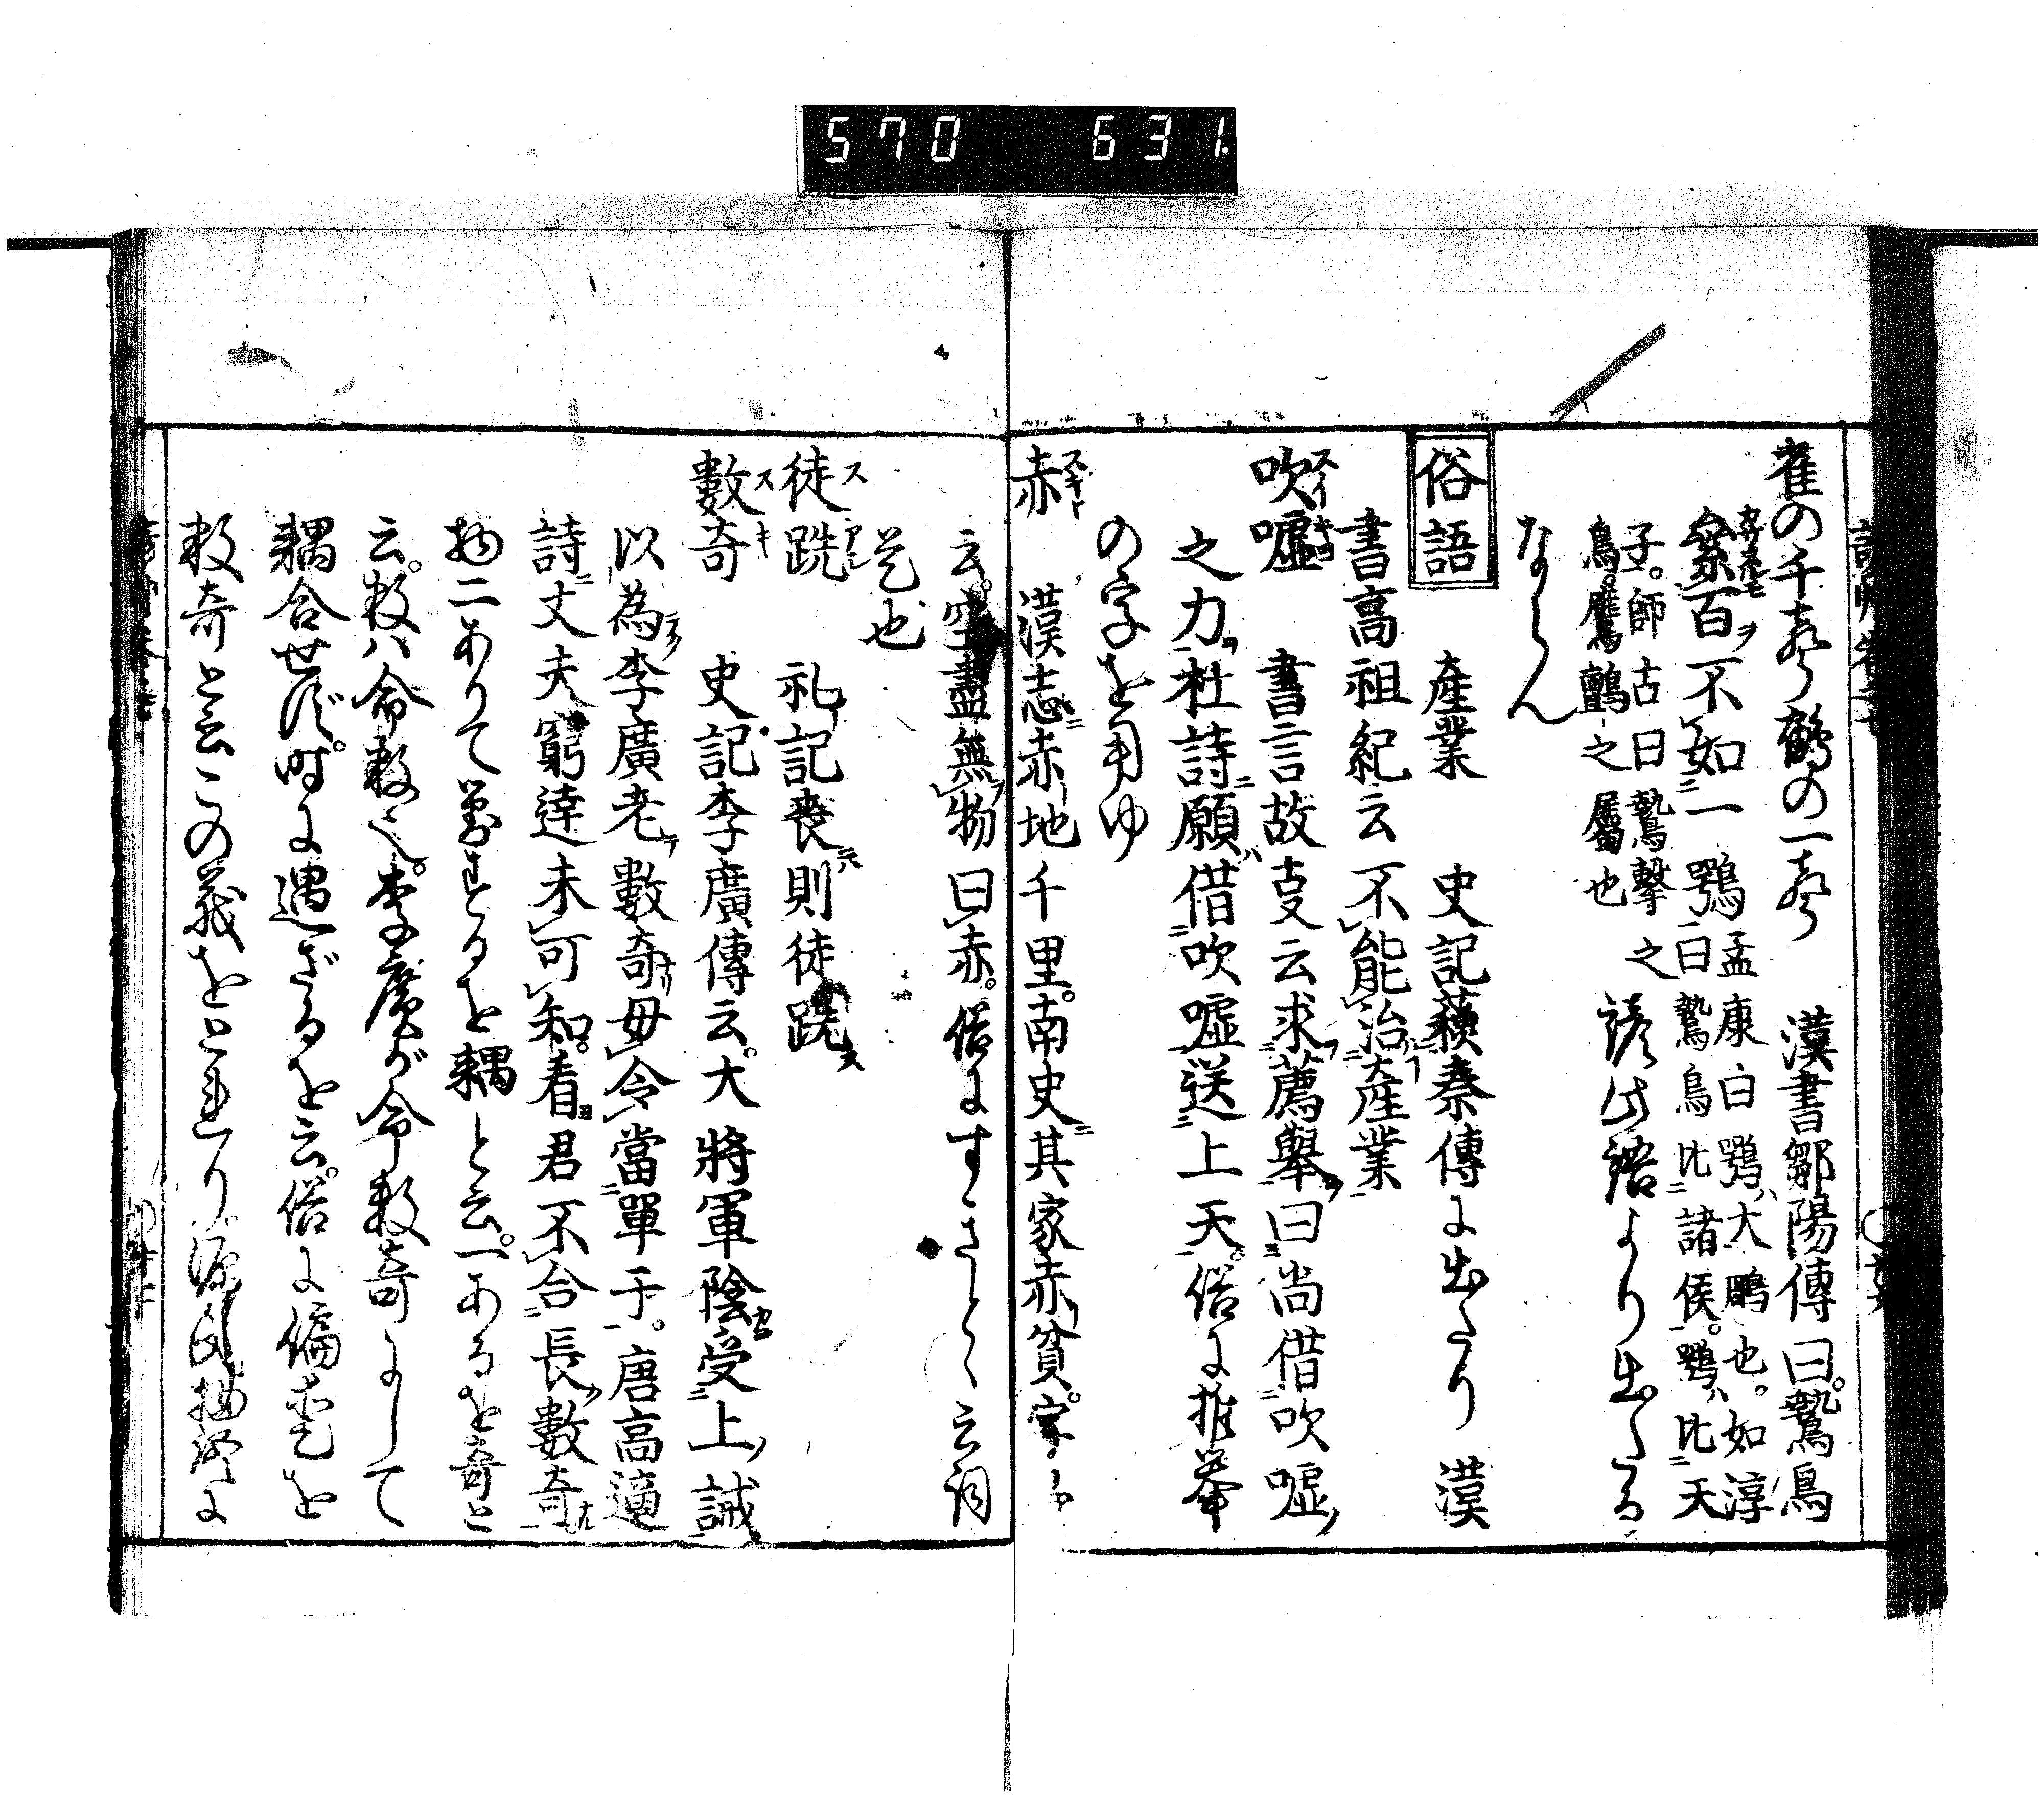 570 631.
雀の千声鶴の一声 漢書鄒陽傳曰。鷙鳥
絫百不如一鶚 孟康曰鶚大鵰也。如淳
曰鷙鳥比諸侯。鶚比天
子。師古曰鷙擊之
鳥。鷹鸇之屬也 諺此語より出たる
ならん
俗語 產業 史記蘇秦傳に出たり 漢
書高祖紀云不能治產業
吹噓 書言故事云求薦舉曰尚借吹噓
之力杜詩願借吹噓送上天。俗に推挙
の字を用ゆ
赤 漢志赤地千里。南史其家赤貧。
云。空盡無物曰赤。俗にすきと云詞
是也
徒跣 礼記喪則徒跣
數奇 史記李廣傳云。大將軍陰受上誡
以為李廣老數奇毋令當單于。唐高適
詩丈夫窮達未可知。看君不合長數奇
物二ありて對するを耦と云。一あるを奇と
云。数ハ命数也。李廣が命数奇にして
耦合せず。時に遇ざるを云。俗に偏奇を
数奇と云この義をとれり源氏物語に